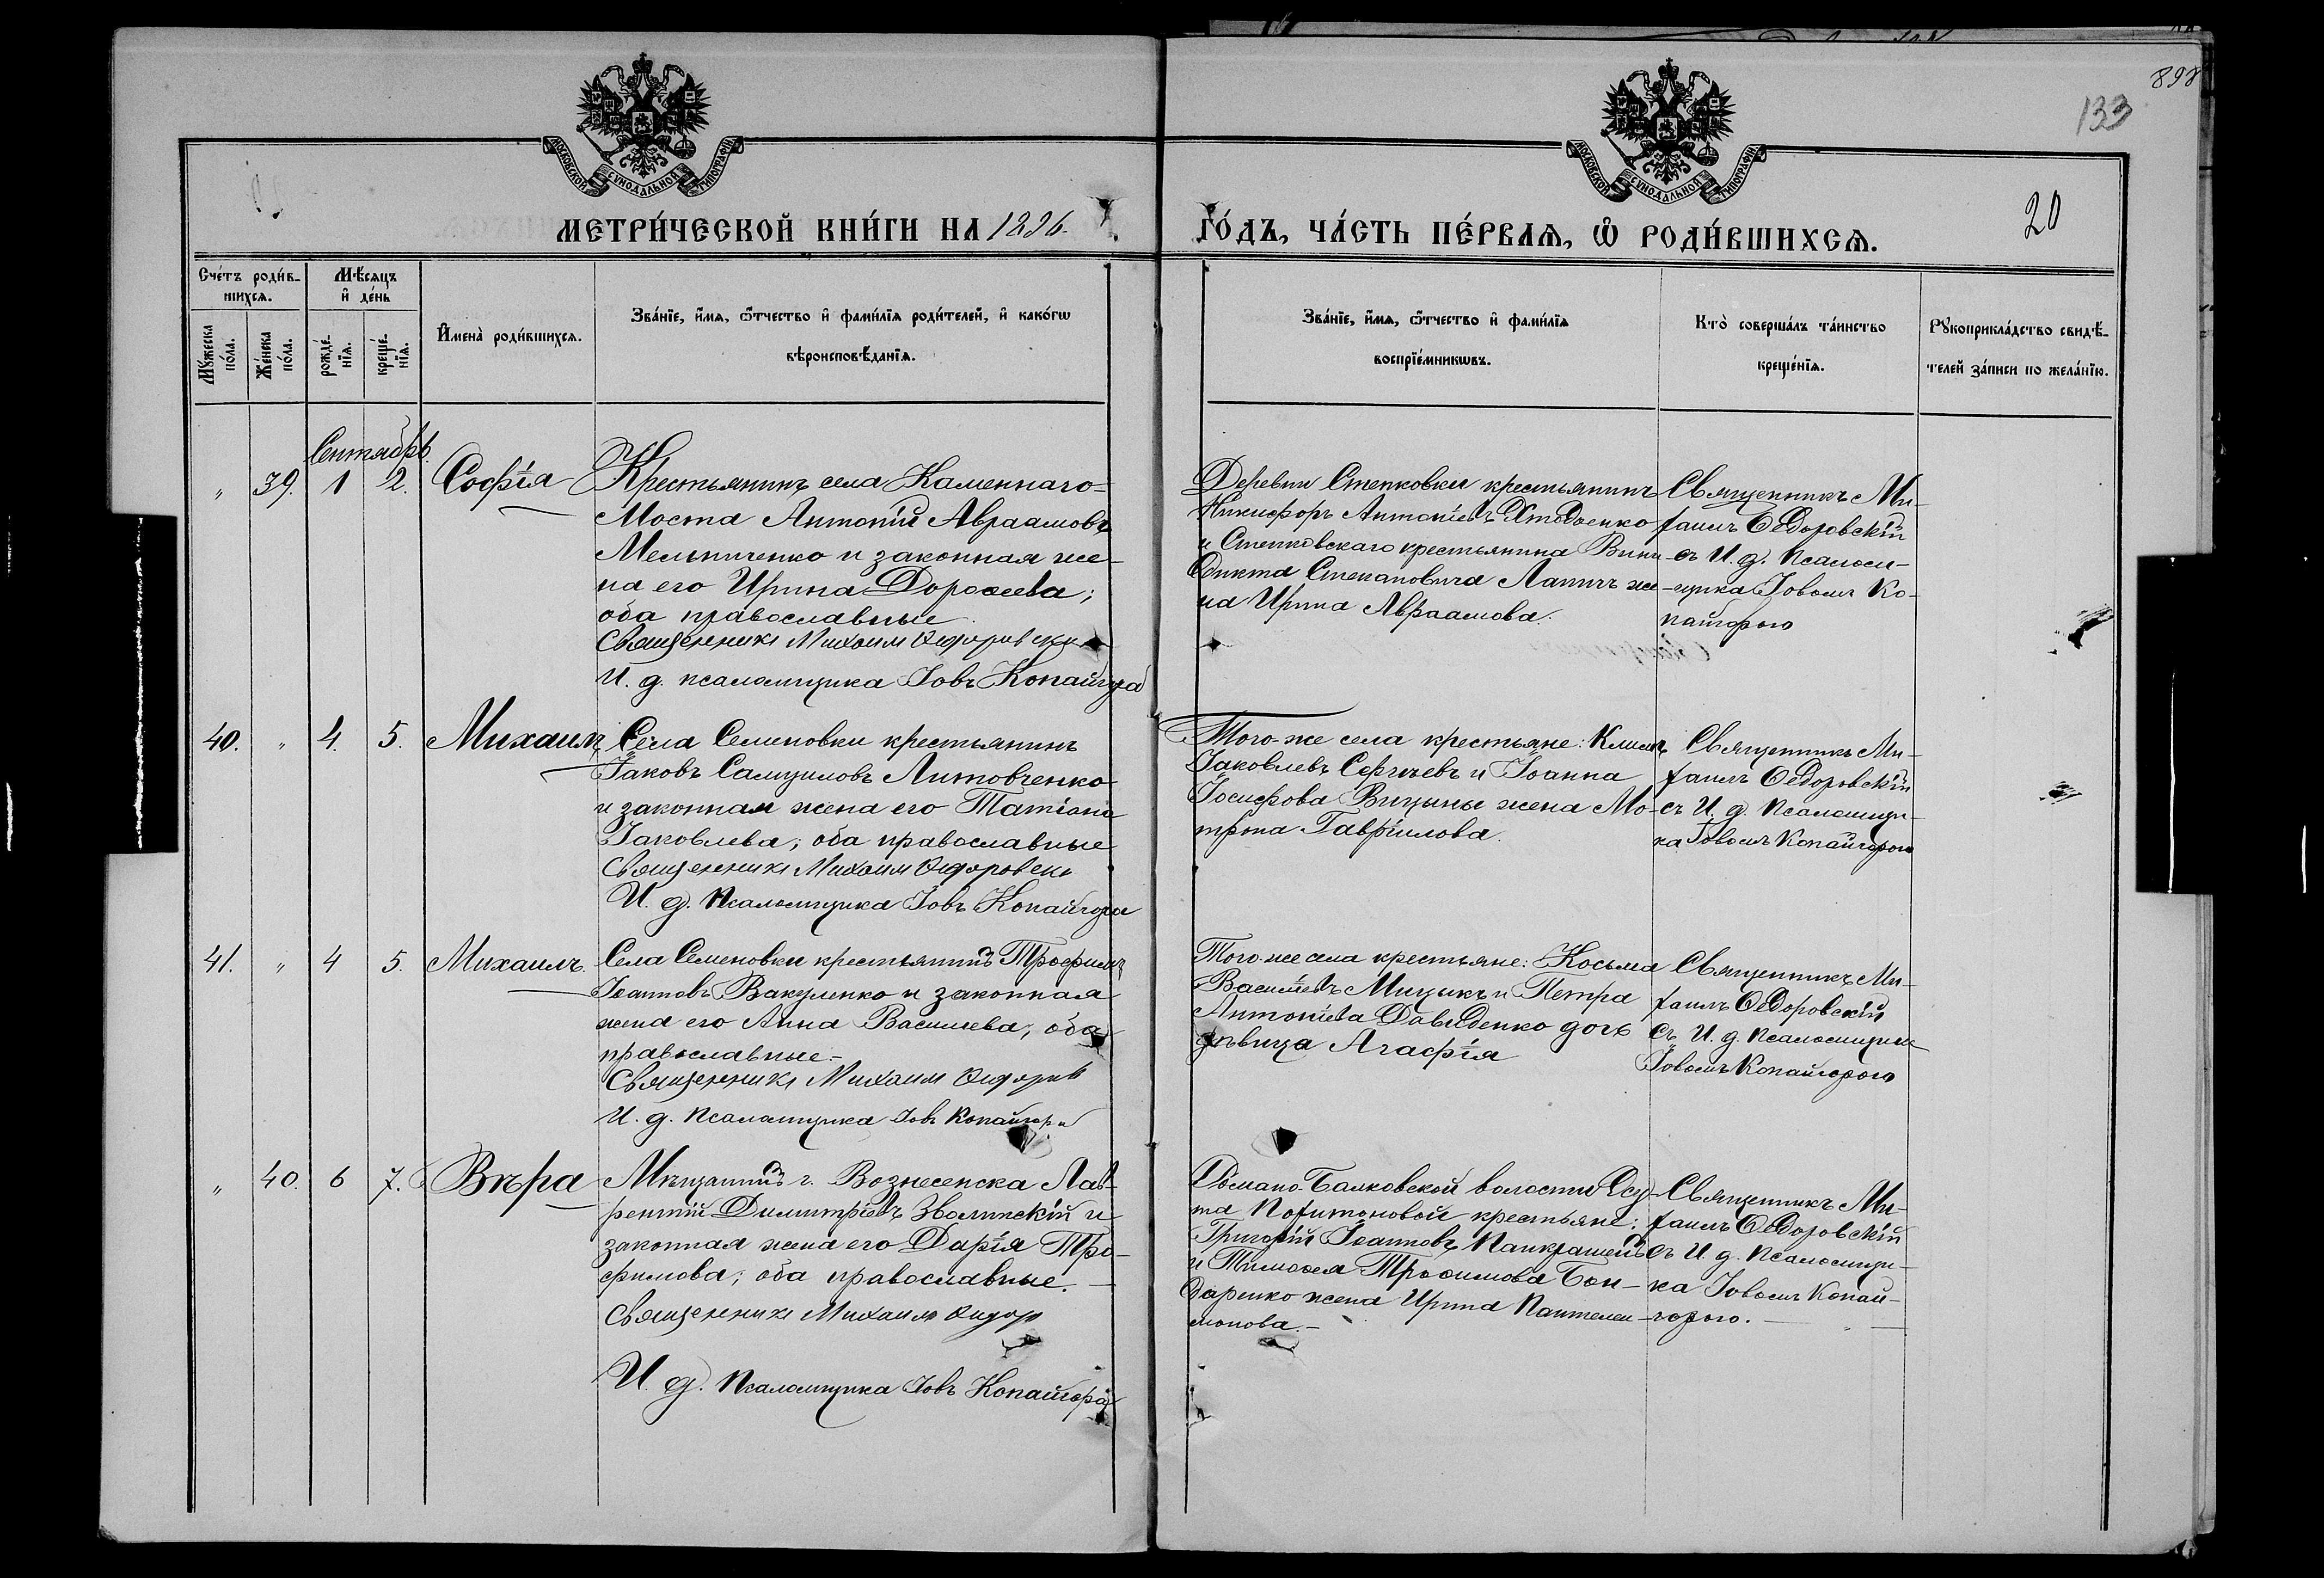 898
133
МОСКОВСКОЙ СУНОДАЛЬНОЙ ТИПОГРАФІИ
МОСКОВСКОЙ СУНОДАЛЬНОЙ ТИПОГРАФІИ
МЕТРИ́ЧЕСКОЙ КНИ́ГИ НА 1896.
ГО́ДЪ, ЧА́СТЬ ПЕ́РВАѦ, Ѡ РОДИ́ВШИХСѦ.
20
Сче́тъ роди́в-
шихсѧ.
Мѣ́сѧцъ
и҆ де́нь
Мꙋ́жеска по́ла.
Же́нска по́ла.
рожде́-нїѧ.
креще́-нїѧ.
И҆мена̀ роди́вшихсѧ.
Зва́нїе, и҆́мѧ, ѻ҆́тчество и҆ фами́лїѧ роди́телей, и҆ како́гѡ
вѣроисповѣ́данїѧ.
Зва́нїе, и҆́мѧ, ѻ҆́тчество и҆ фами́лїѧ
воспрїе́мникѡвъ.
Кто̀ соверша́лъ та́инство
креще́нїѧ.
Рꙋкоприкла́дство свидѣ́-
телей за́писи по жела́нїю.
Сентябрь.
" 39. 1 2. Софія
Крестьянинъ села Каменнаго-
Моста Антоній Авраамовъ
Мельниченко и законная же-
на его Ирина Дороѳеева;
оба православные
Священникъ Михаилъ Ѳедоровскі
И. д. псаломщика Іовъ Копайгора
Деревни Степковки крестьянинъ
Никифоръ Антоніевъ
и Степковскаго крестьянина Вини-
дикта Степановича Лапичъ же-
на Ирина Авраамова.
Священникъ Ми-
хаилъ Ѳедоровскій
съ И. д. псалом-
щика Іовомъ Ко-
пайгорою
40. " 4. 5. Михаилъ
Села Семеновки крестьянинъ
Іаковъ Самуиловъ Литовченко
и законная жена его Татіана
Іаковлева; оба православные
Священникъ Михаилъ Ѳедоровскі
И. д. псаломщика Іовъ Копайгора
Того-же села крестьяне: Климъ
Іаковлевъ Сергіевъ и Іоанна
Іосифова Вицины жена Мо-
трона Гавріилова.
Священникъ Ми-
хаилъ Ѳедоровскій
съ И. д. псаломщи-
ка Іовомъ Копайгорою
41. " 4 5. Михаилъ.
Села Семеновки крестьянинъ Трофимъ
Іоанновъ Вакуленко и законная
жена его Анна Василіева; оба
православные.-
Священникъ Михаилъ Ѳедоров
И. д. псаломщика Іовъ Копайгора
Того-же села крестьяне: Косьма
Василіевъ Мицыкъ и Петра
Антоніева Давиденко дочь
дѣвица Агафія
Священникъ Ми-
хаилъ Ѳедоровскій
съ И. д. псаломщика
Іовомъ Копайгорою
" 40. 6 7. Вѣра
Мѣщанинъ г. Вознесенска Лав-
рентій Димитріевъ Зволинскій и
законная жена его Дарія Тро-
фимова; оба православные.-
Священникъ Михаилъ Ѳедор
И. д. псаломщика Іовъ Копайгора
Домано-Балковской волости
крестьяне:
Григорій Іоанновъ
и Тимоѳея Троѳимова Бон-
даренко жена Ирина Пантелеи-
монова.-
Священникъ Ми-
хаилъ Ѳедоровскій
съ И. д. псаломщи-
ка Іовомъ Копай-
горою.